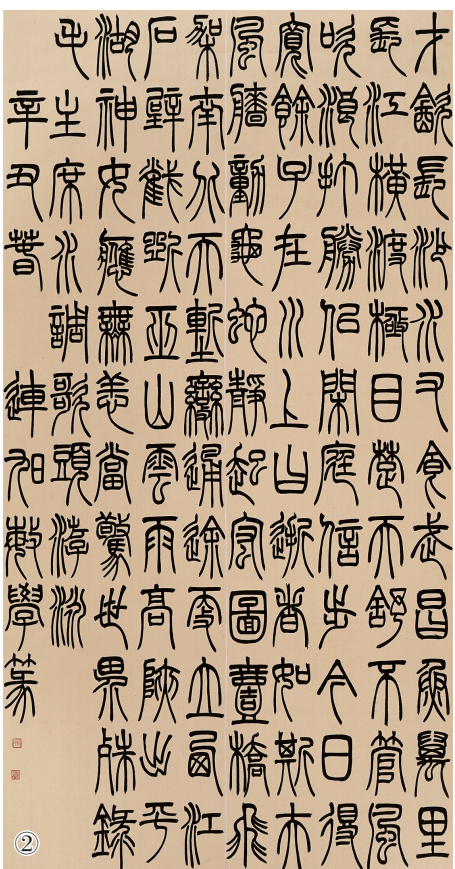 才飲長沙水又食武昌魚萬里
長江橫渡極目楚天舒不管風
吹浪打勝似閑庭信步今日得
寬餘子在川上曰逝者如斯夫
風檣動龜蛇靜起宏圖壹橋飛
架南北天塹變通途更立西江
石壁截斷巫山雲雨高峽出平
湖神女應無恙當驚世界殊錄
毛主席水調歌頭游泳
辛丑春連學篆
②